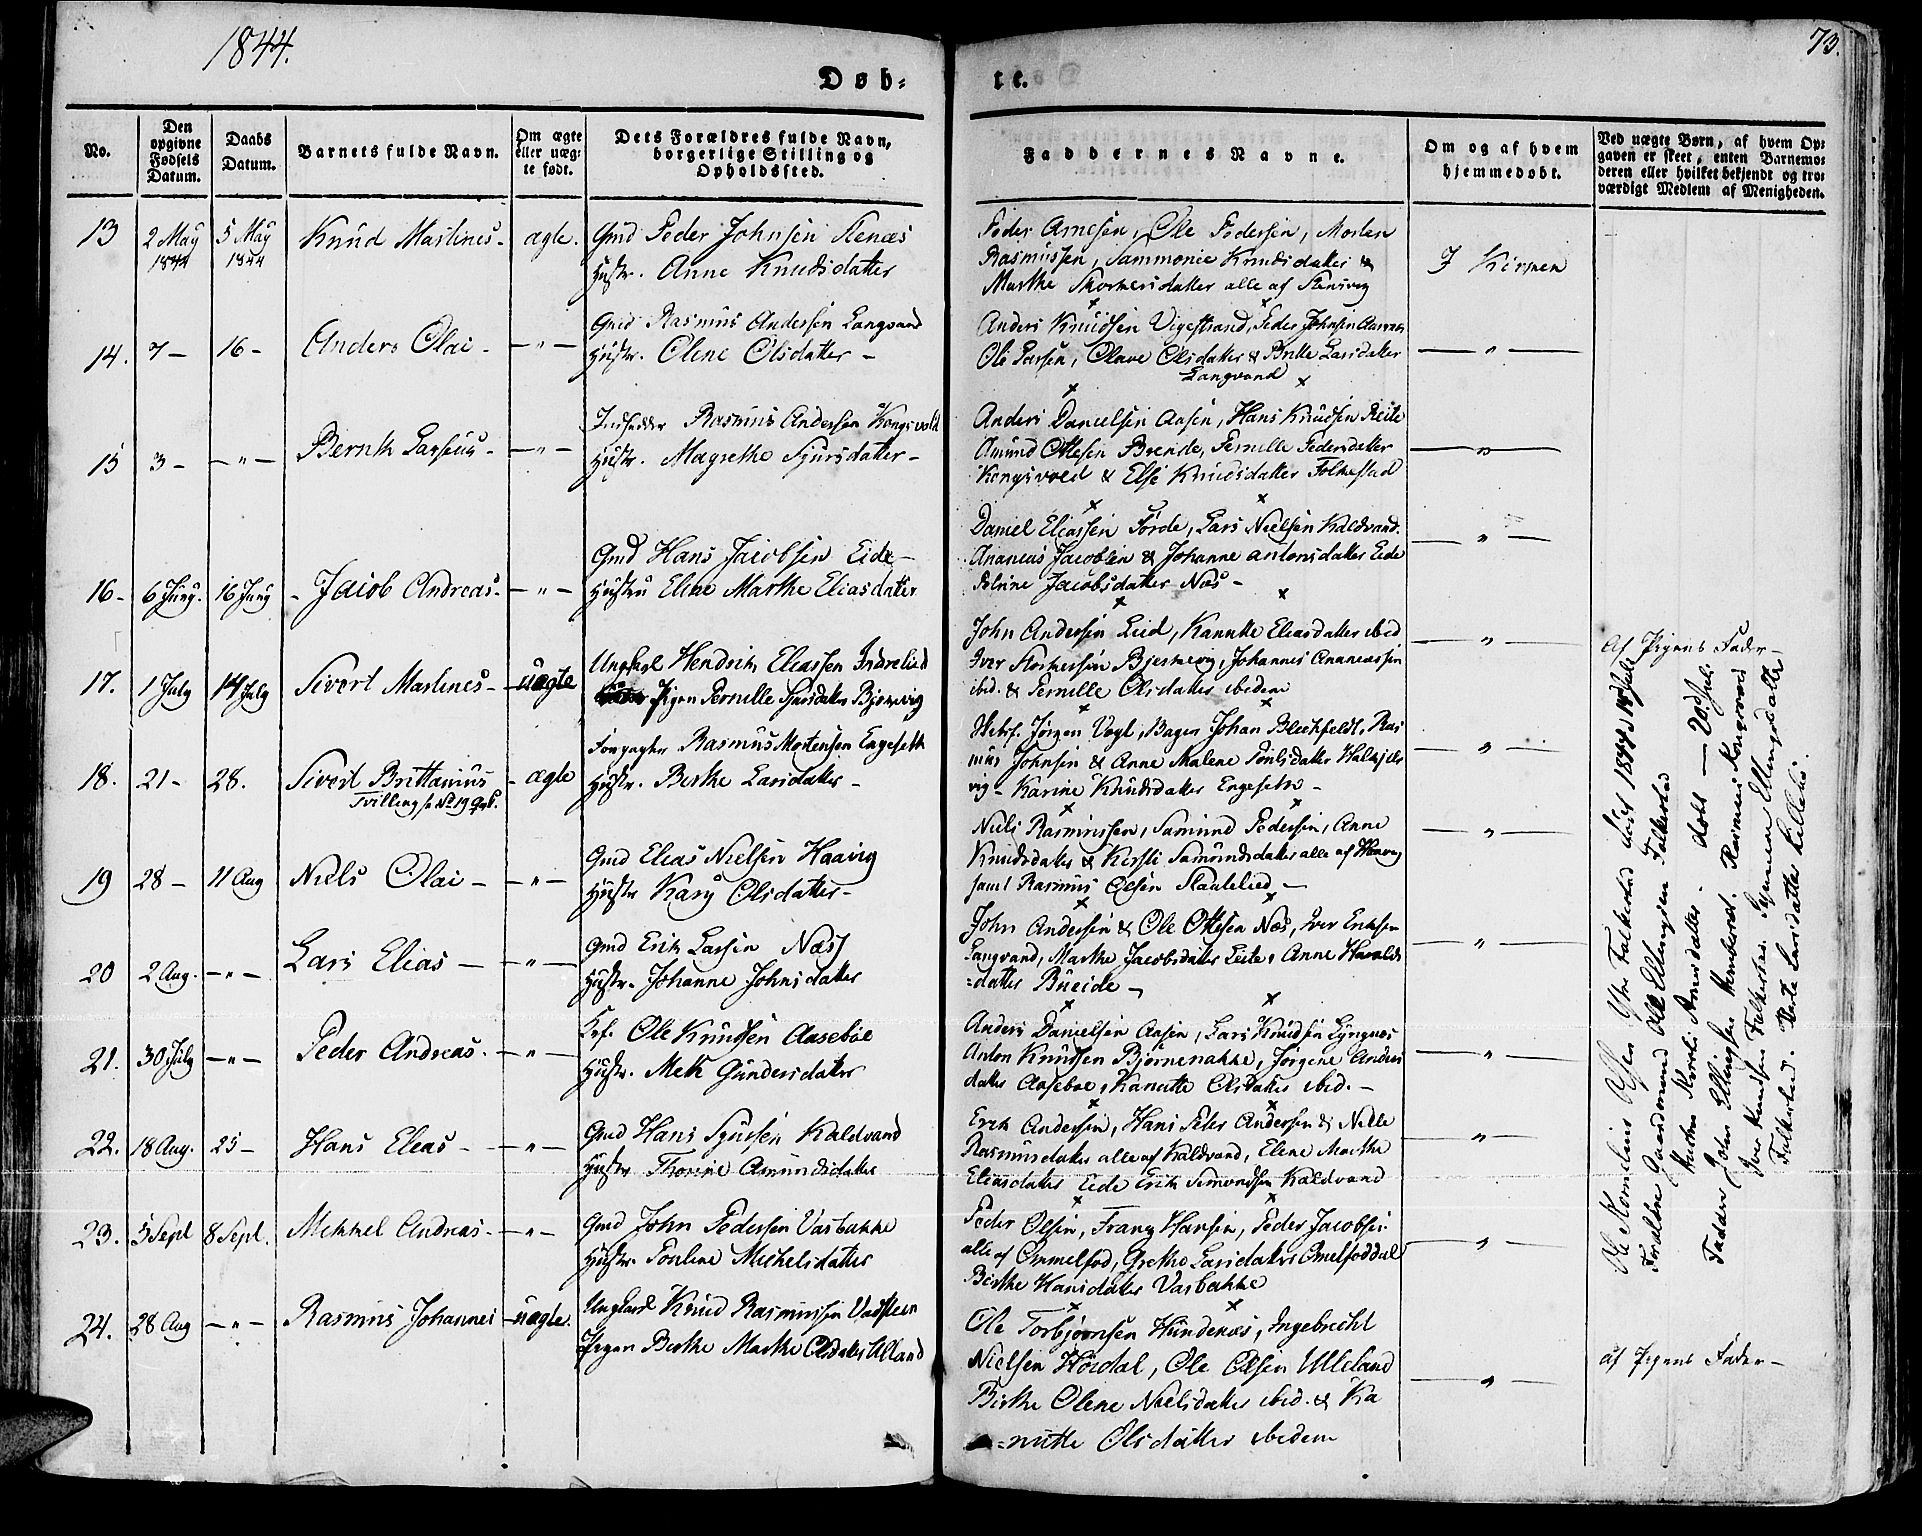 1844.
73.
Døb-
te.
No.
Den opgivne Fødsels Datum.
Daabs Datum.
Barnets fulde Navn.
Om ægte eller uægte født.
Dets Forældres fulde Navn, borgerlige Stilling og Opholdssted.
Faddernes Navne.
Om og af hvem hjemmedøbt.
Ved uægte Børn, af hvem Opgaven er skeet, enten Barnemoderen eller hvilket bekjendt og troværdigt Medlem af Menigheden.
13
2 May 1844
5 May 1844
Knud Martines -
ægte.
Gmd Peder Johnsen Stenæs
Hustr. Anne Knudsdatter
Peder Arnesen, Ole Pedersen, Morten
Rasmussen, Sammonie Knudsdatter &
Marthe Storkersdatter alle af Stensvig
I Kirken
14.
7 -
16 -
Anders Olai -
- " -
Gmd Rasmus Andersen Langvand
Hustr. Oline Olsdatter -
Anders Knudsen Vigestrand, Peder Johnsen
Ole Larsen, Olave Olsdatter & Brithe Larsdatter
Langvand
- " -
15
3 -
- " -
Bernth Larseus -
- " -
Indsidder Rasmus Andersen Kongsvold
Hustr. Magrethe Sjursdatter -
Anders Danielsen Aasen, Hans Knudsen Reite
Amund Ottesen Brende, Pernille Pedersdatter
Kongsvold & Else Knudsdatter Folkestad
- " -
16 -
6 Juny.
16 Juny
- Jacob Andreas -
- " -
Gmd Hans Jacobsen Eide -
Hustru Eline Marthe Eliasdatter
Daniel Eliassen Førde, Lars Nielsen Kaldvand.
Ananias Jacobsen & Johanne Antonsdatter Eide
Jacobsdatter Næs -
- " -
17.
1 July
14 July
Sivert Martines -
uægte
Ungkarl Hendrik Eliassen Indrelied
Pigen Pernille Sjursdatter Bjørnevig
John Andersen Lied, Kanutte Eliasdatter ibid
Iver Storkersen Bjerkevig, Johannes Ananiassen
ibid. & Pernille Olsdatter ibidem
- " -
Af Pigens Fader -
18.
21 -
28.
Sivert Brittanius
Tvilling s. No 19 Qvk.
- ægte
Forpagter Rasmus Mortensen Engeseth
Hustr. Berthe Larsdatter -
Jørgen Vogt, Bager Johan Blechfeldt, Ras
mus Johnsen & Anne Malene Poulsdatter Halkjels
vig - Karine Knudsdatter Engeseth -
- " -
19
28 -
11 Aug
Niels Olai -
- " -
Gmd Elias Nielsen Haavig
Hustr Kary Olsdatter -
Niels Rasmussen, Samund Pedersen, Anne
Knudsdatter & Kirsti Samundsdatter alle af Haavig
samt Rasmus Olsen Staalelied -
- " -
20
2 Aug.
- " -
Lars Elias -
- " -
Gmd Erik Larsen Næss
Hustr. Johanne Johnsdatter
John Andersen & Ole Ottesen Næs, Iver Eriksen
Langvand, Marthe Jacobsdatter Eide, Anne Haralds
=datter Bueide -
- " -
21.
30 July
- " -
Peder Andreas -
- " -
Ole Knudsen Aasebøe
Hustr. Mette Gundersdatter
Anders Danielsen Aasen, Lars Knudsen Lyngnes
Anton Knudsen Bjørnenakke, Jørgine Anders
datter Aasebøe, Kanutte Olsdatter ibid. -
- " -
22.
18 Aug.
25 -
Hans Elias -
- " -
Gmd Hans Sjursen Kaldvand
Hustr Thorine Amundsdatter
Erik Andersen, Hans Peder Andersen & Nille
Rasmusdatter alle af Kaldvand, Eline Marthe
Eliasdatter Eide Erik Simondsen Kaldvand
- " -
23.
5 Sept
8 Sept.
Mikkel Andreas -
- " -
Gmd John Pedersen Vasbakke
Hustr. Pouline Michelsdatter
Peder Olsen, Franz Hansen, Peder Jacobsen
alle af Ommelfod, Grethe Larsdatter Omelfoddal
Birthe Hansdatter Vasbakke
- " -
24.
28 Aug
- " -
Rasmus Johannes
- uægte.
Ungkarl Knud Rasmussen Vadsteen
Pigen Berthe Marthe Olsdatter Ulland
Ole Torbjørnsen Hundenæs, Ingebricht
Nielsen Hordal, Ole Olsen Ulleland
Birthe Olene Nielsdatter ibid. & Ka
=nutte Olsdatter ibidem
- " -
af Pigens Fader -
Ole Kornelius Olsen Ytre Folkestad født 1844 d 14 July
Forældre Gaardmand Ole Ellingsen Folkestad
Hustru Arnesdatter. døbt - 20d July.
Faddere John Ellingsen Rasmus Kongsvold
Iver Knudsen Folkestad.
Folkestad. Larsdatter